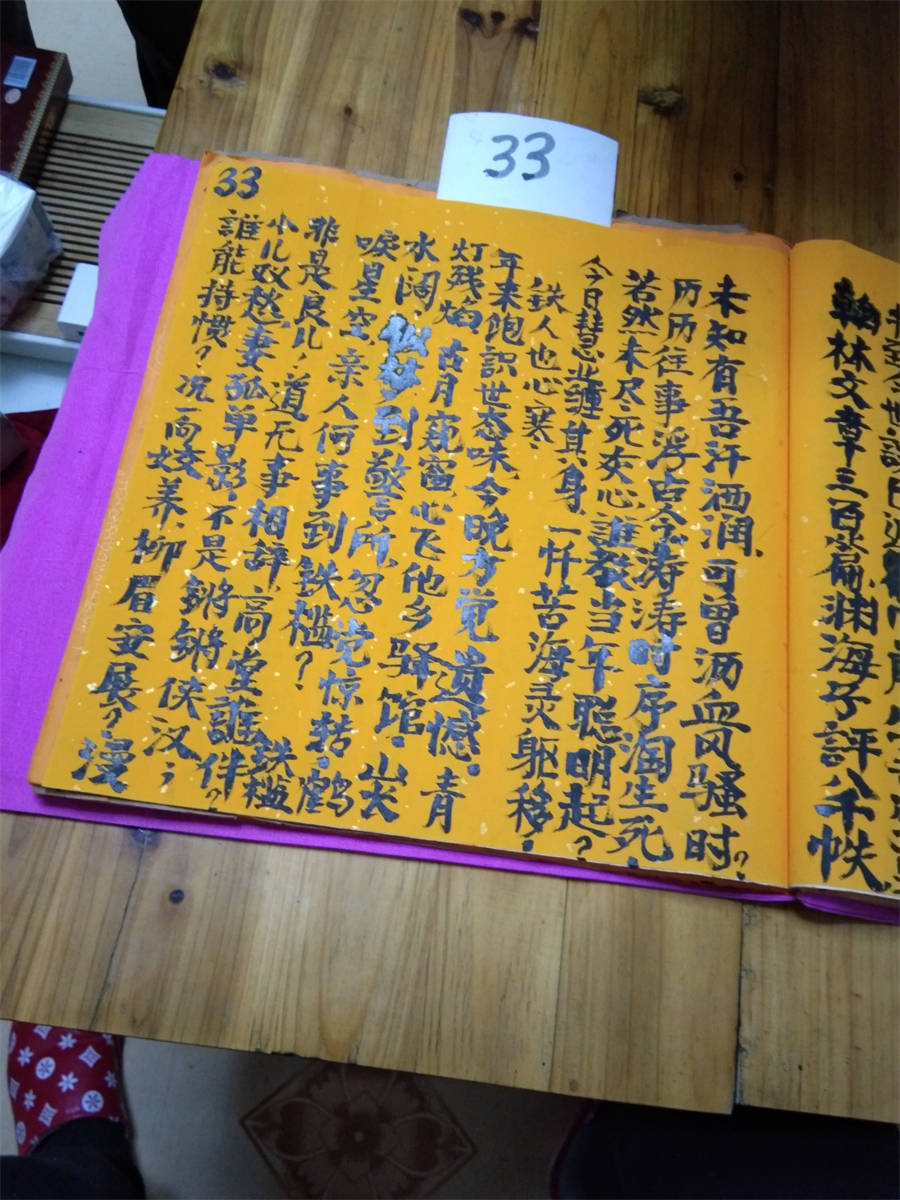 33
33
翰林文章三百篇渊海子評八千帙
未知有吾汗洒润,可曾洒血风骚时?
历历往事浮占今,涛涛时序淘生死!
若然未尽死灰心,誰教当年聪明起?
今日慧业缠其身,一忏苦海灵躯移!
铁人也心寒.
年来饱识世态味,今晚方觉遗憾.青
灯残焰,古月窥窗,心飞他乡驿馆.山长
水阔,似梦到警所.忽觉惊转,鹤
唳星空,亲人何事到铁槛?铁槛
非是良比,道无事相辞,高堂誰伴?
小儿奴愁,妻孤单影,不是锵锵侠汉;
誰能持惯?况一向娇养,柳眉安展?漫